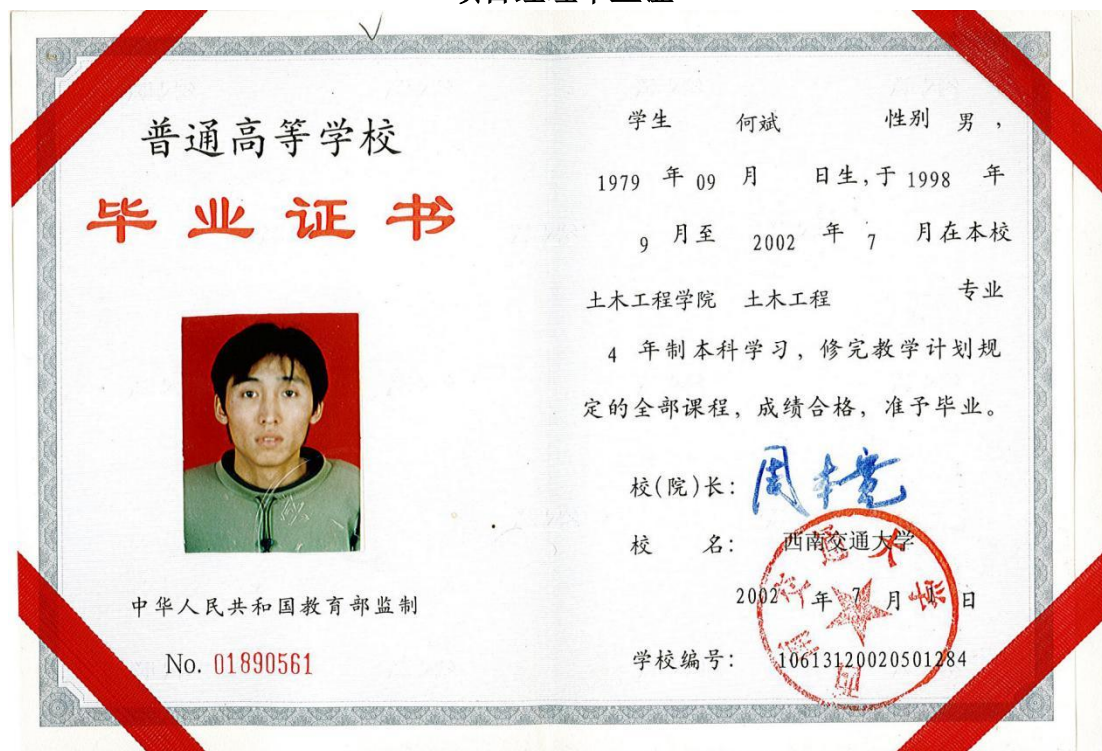 普通高等学校
毕业证书
中华人民共和国教育部监制
No. 01890561
学生 何斌 性别 男,
1979 年 09 月 日生,于 1998 年
9 月至 2002 年 7 月在本校
土木工程学院 土木工程 专业
4 年制本科学习,修完教学计划规
定的全部课程,成绩合格,准予毕业。
校(院)长:
校 名: 西南交通大学
2002 年 7 月 1 日
学校编号: 10613120020501284
西南交通大学